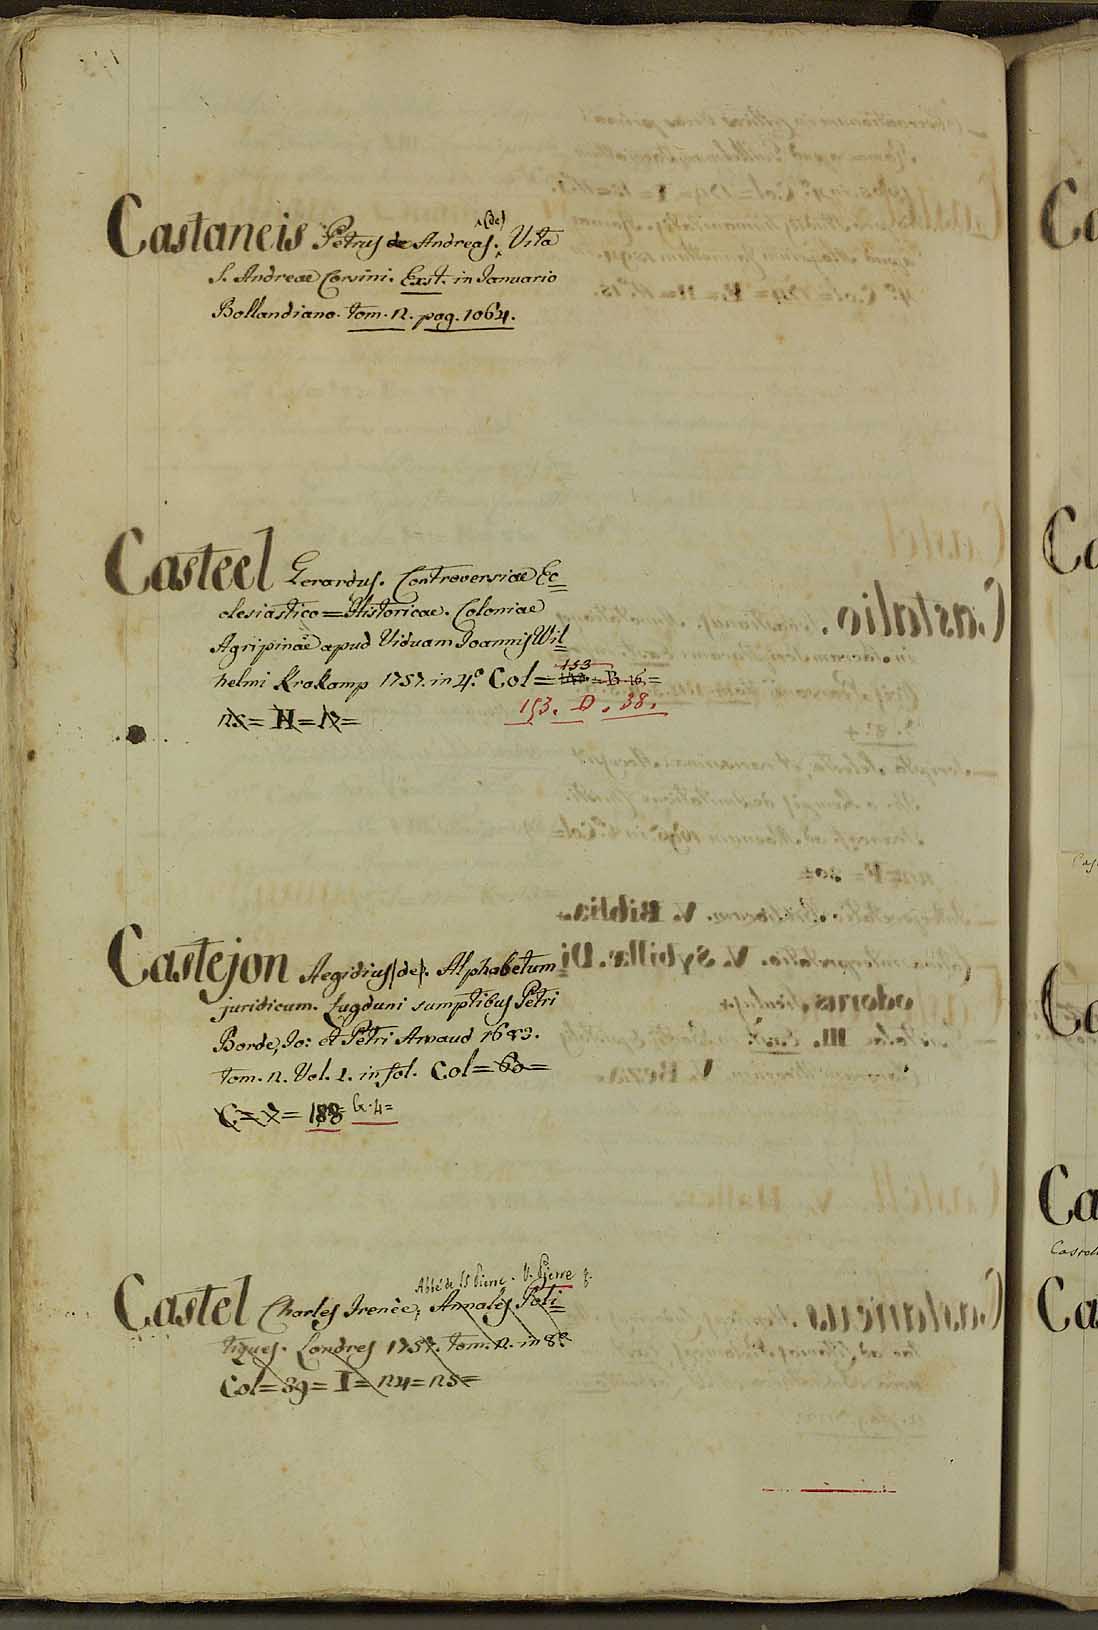 (de)
Castaneis Petrus de Andreas. Vita
S. Andreae Corsini. Exst. in Januario
Bollandiano. tom. 2. pag. 1064.
Casteel Gerardus. Controversiae Ec
clesiastico=Historicae. Coloniae
Agripinae apud Viduam Joannis Wil
helmi Krakamp 1757. in 4º Col= 153 = B 16 =
25= H= 17= 153. D. 38.
Castejon Aegidius (de). Alphabetum
juridicum. Lugduni sumptibus Petri
Borde, Jo: et Petri Arnaud 1683.
Tom. 2. Vol. 1. in fol. Col= 60=
C= 7= 188 G. 4=
Abbé de St Pierre. V. Pierre
Castel Charles Irenée, Annales Poli
tiques. Londres 1757. tom. 2. in 8º
Col= 39= I= 24= 25=
Ca
Ca
Ca
Ca
Ca